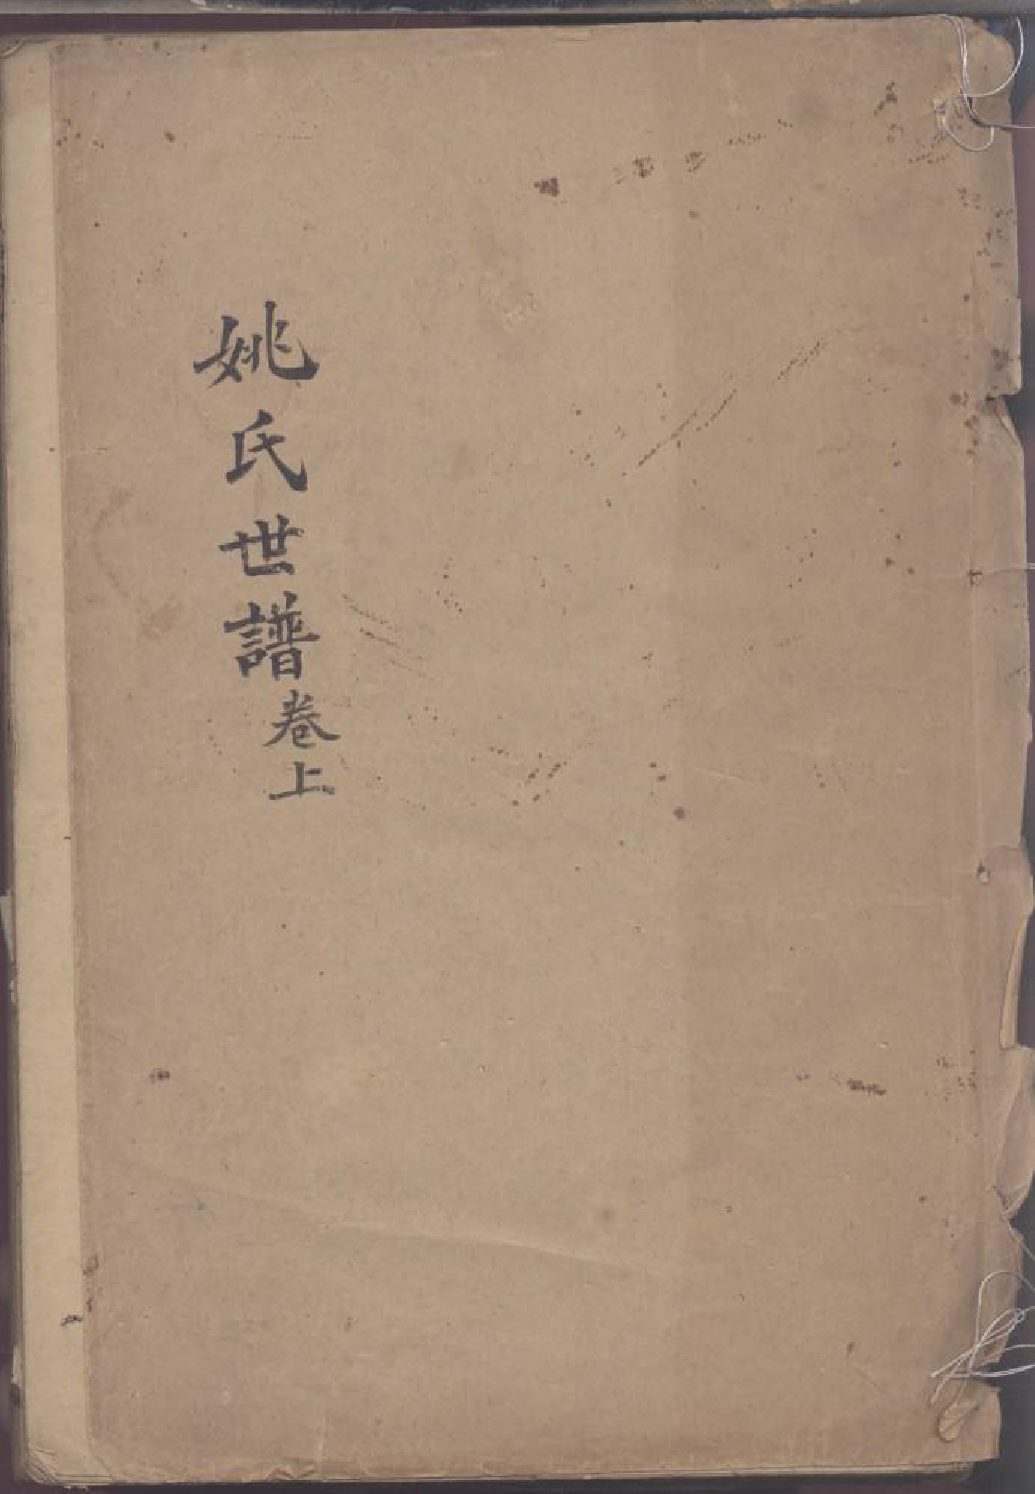 姚氏世譜卷上